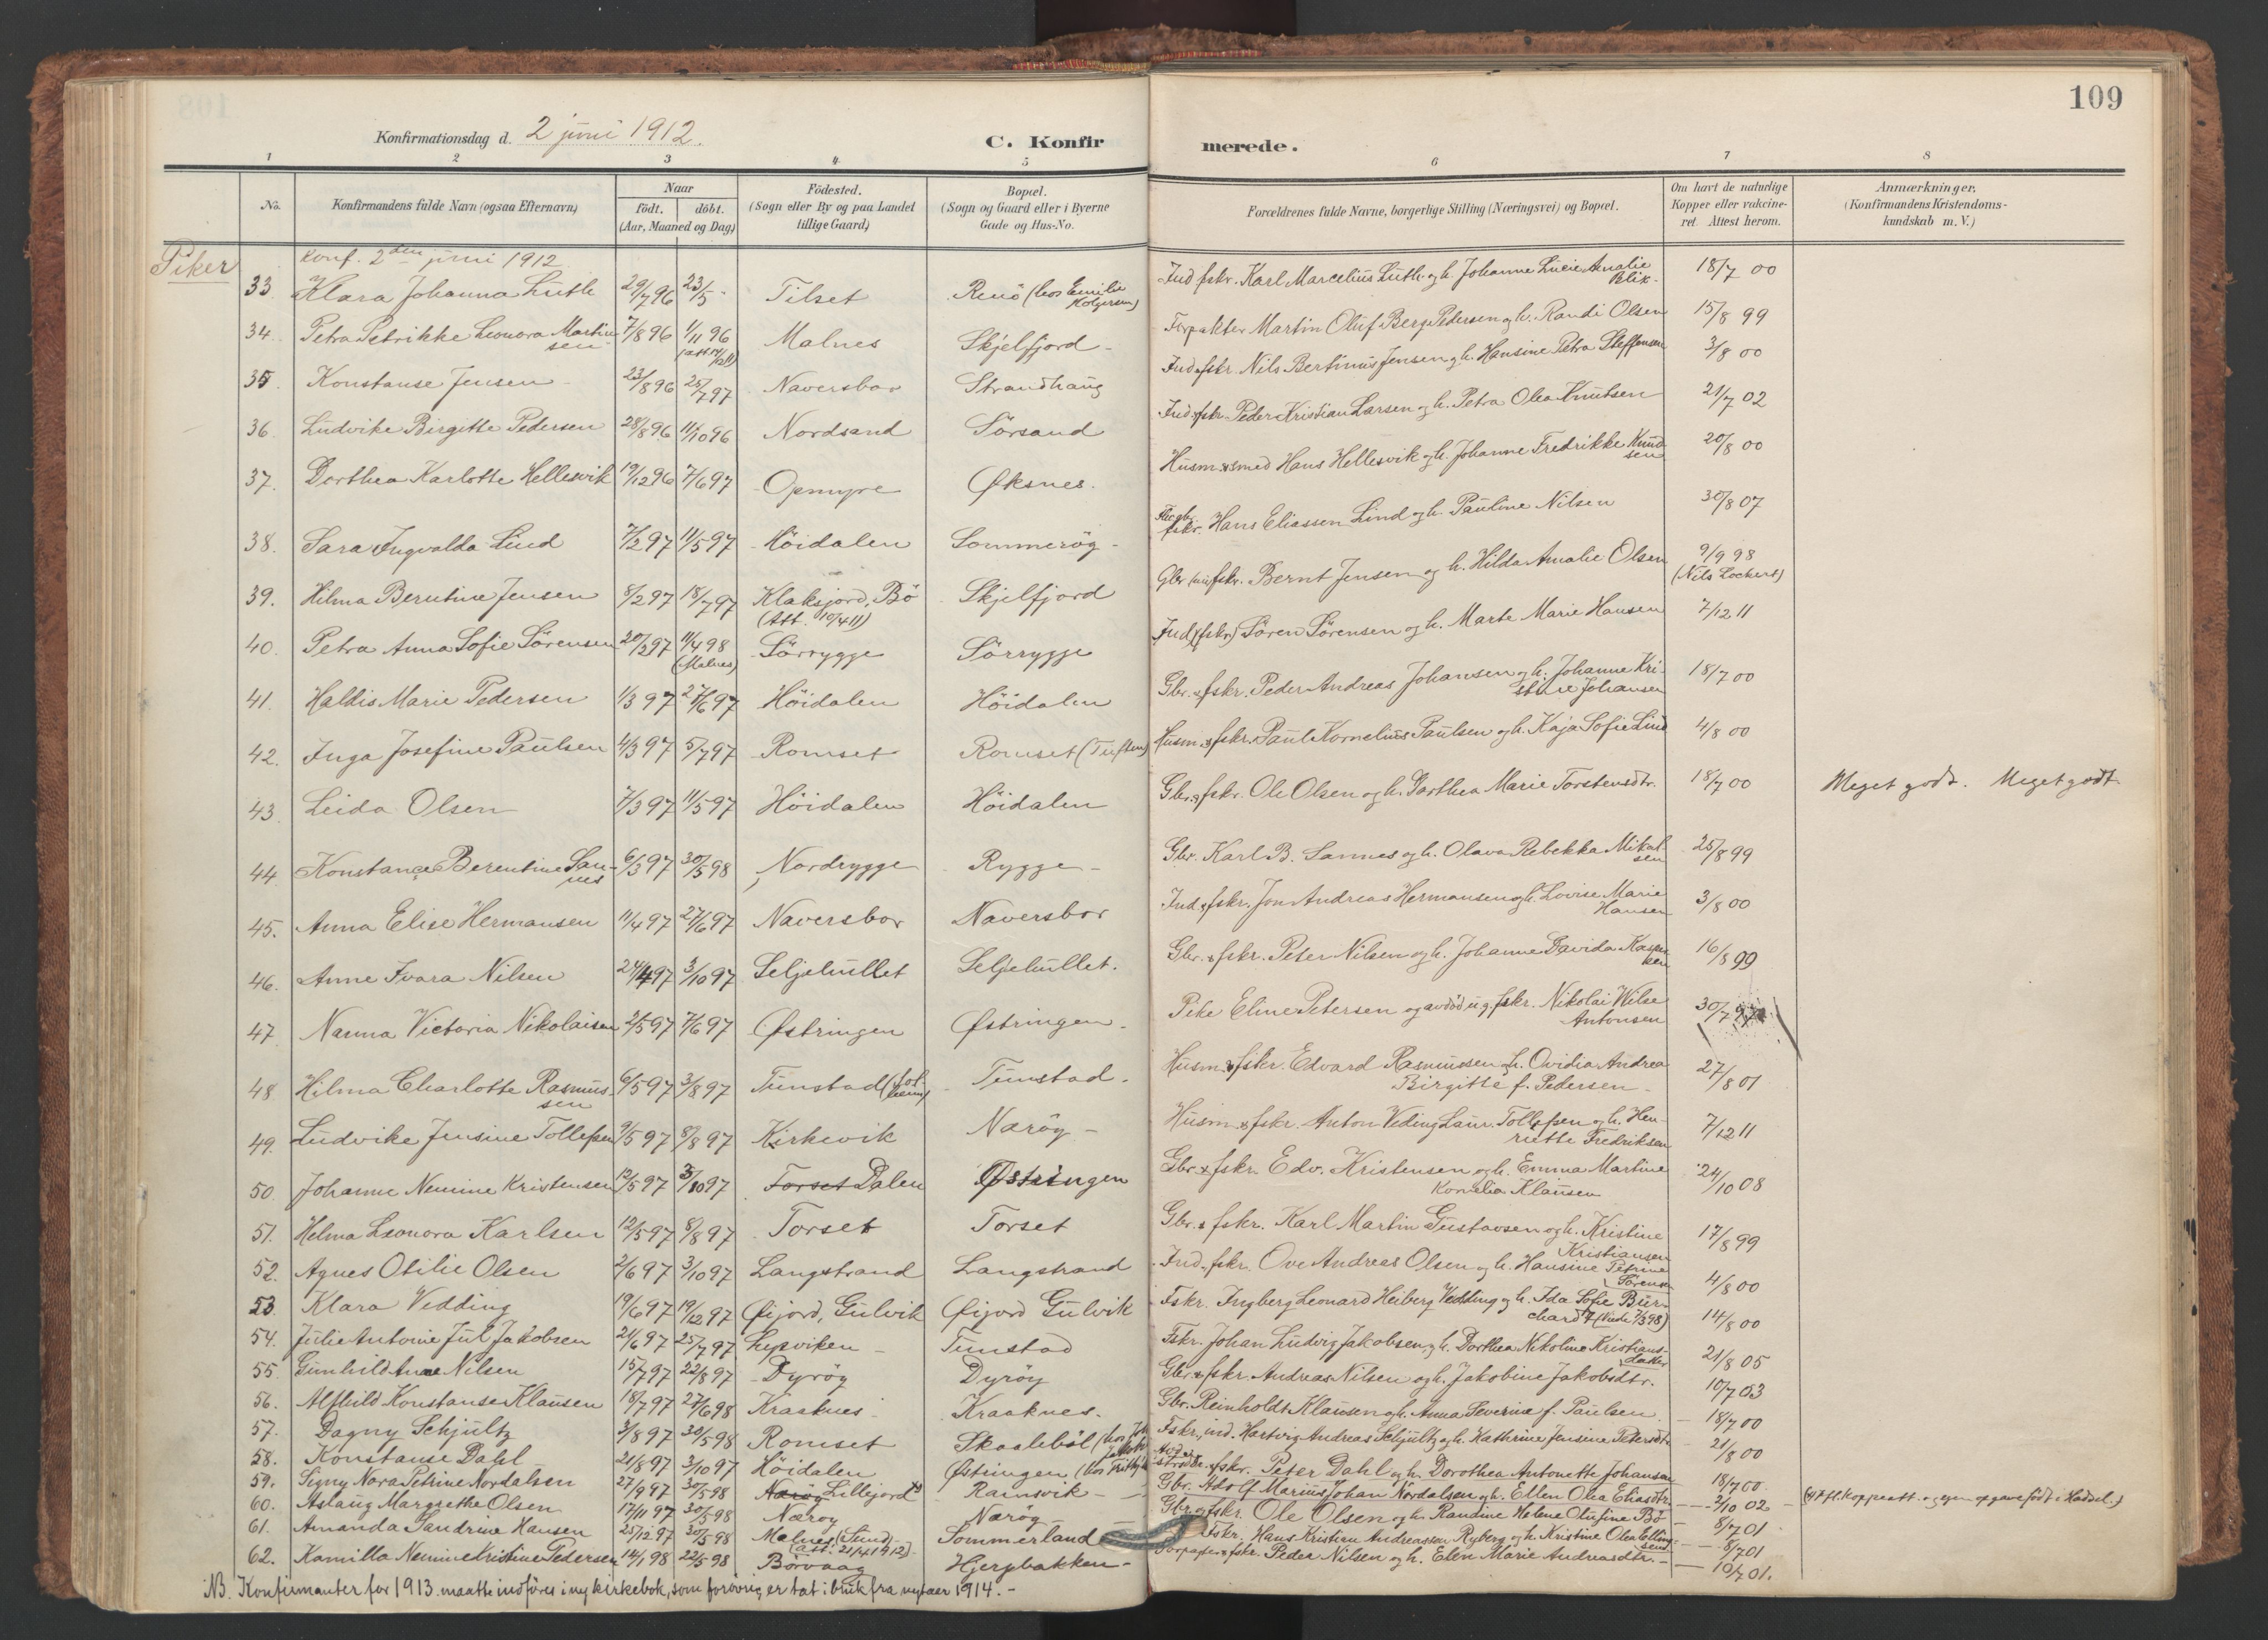 109
Konfirmationsdag d. 2 juni 1912.
C. Konfirmerede.
1 2 3 4 5 6 7 8
No. Konfirmandens fulde Navn (ogsaa Efternavn) Naar födt. döbt. (Aar, Maaned og Dag) Födested. (Sogn eller By og paa Landet tillige Gaard) Bopæl. (Sogn og Gaard eller i Byerne Gade og Hus-No. Forældrenes fulde Navne, borgerlige Stilling (Næringsvei) og Bopæl. Om havt de naturlige Kopper eller vaccineret. Attest herom. Anmærkninger. (Konfirmandens Kristendomskundskab m. V.)
Piker
Konf. 2den juni 1912
33. Klara Johanna Luth 29/7 96 23/5 Tilset Renö (hos Emilie Holgersen) Ind fskr. Karl Marcelius Luth og h. Johanne Lucie Amalie Blik. 18/7 00
34. Petra Petrikke Leonora Martinsen 7/8 96 1/11 96 Malnes Skjelfjord Forpakter Martin Oluf Berg Pedersen og h. Randi Olsen 15/8 99
35. Konstanse Jensen 23/8 96 25/7 97 Naversbor Strandhaug Ind. fskr. Nils Bertinus Jensen og h. Hansine Petra Steffensen 3/8 00
36. Ludvike Birgitte Pedersen 28/8 96 11/10 96 Nordsand Sörsand Ind. fskr. Peder Kristian Larsen og h. Petra Olea Knutsen 21/7 02
37. Dorthea Karlotte Hellesvik 19/12 96 7/6 97 Opmyre Øksnes. Husm. & smed Hans Hellesvik og h. Johanne Fredrikke Knudsen 20/8 00
38. Sara Ingvalda Lind 7/2 97 11/5 97 Höidalen Sommeröy fskr. Hans Eliassen Lind og h. Pauline Nilsen 30/8 07
39. Hilma Berntine Jensen 8/2 97 18/7 97 Klaksjord, Bö (Att. 10/4 11) Skjelfjord Gbr. fskr. Bernt Jensen og h. Hilda Amalie Olsen 9/9 98 (Nils Lockert)
40. Petra Anna Sofie Sörensen 20/2 97 11/4 98 (Malnes) Sörrygge Sörrygge Ind. (fskr) Sören Sörensen og h. Marte Marie Hansen 7/12 11
41. Haldis Marie Pedersen 1/3 97 27/6 97 Höidalen Höidalen Gbr. & fskr. Peder Andreas Johansen og h. Johanne Kristine Johansen 18/7 00
42. Inga Josefine Paulsen 4/3 97 5/7 97 Romset Romset (Tuften) Husm. & fskr. Paul Kornelius Paulsen og h. Kaja Sofie Lind 4/8 00
43. Leida Olsen 7/3 97 11/5 97 Höidalen Höidalen Gbr. & fskr. Ole Olsen og h. Dorthea Marie Torstensdtr. 18/7 00 Meget godt. Meget godt
44. Konstance Berentine Sannes 6/3 97 30/5 98 Nordrygge Rygge Gbr. Karl B. Sannes og h. Olava Rebekka Mikalsen 25/8 99
45. Anna Elise Hermansen 11/4 97 27/6 97 Naversbor Naversbor Ind. & fskr. Jon Andreas Hermansen og h. Lovise Marie Hansen 3/8 00
46. Anne Ivara Nilsen 24/4 97 3/10 97 Seljehullet Seljehullet. Gbr. & fskr. Peter Nilsen og h. Johanne Davida 16/8 99
47. Nanna Victoria Nikolaisen 2/5 97 7/6 97 Østringen Østringen Pike Eline Petersen og avdöd ug. fskr. Nikolai Wilse Antonsen 30/7 97
48. Hilma Charlotte Rasmussen 6/5 97 3/8 97 Tunstad Tunstad. Husm. & fskr. Edvard Rasmussen og h. Ovidia Andrea Birgitte f. Pedersen 27/8 01
49. Ludvike Jensine Tollefsen 9/5 97 8/8 97 Kirkevik Naröy Husm. & fskr. Anton Veding Laur. Tollefsen og h. Henriette Fredriksen 7/12 11
50. Johanne Nemine Kristensen 12/5 97 3/10 97 Torset Dalen Østringen Gbr. & fskr. Edv. Kristensen og h. Emma Martine Kornelia Klausen 24/10 08
51. Helma Leonora Karlsen 12/5 97 8/8 97 Torset Torset Gbr. & fskr. Karl Martin Gustavsen og h. Kristine Kristiansen 17/8 99
52. Agnes Otilie Olsen 2/6 97 3/10 97 Langstrand Langstrand Ind. fskr. Ove Andreas Olsen og h. Hansine Petrine Sörensen 4/8 00
53. Klara Vedding 19/6 97 19/12 97 Øijord, Gulvik Øijord Gulvik Fskr. Ingberg Leonard Heiberg Vedding og h. Ida Sofie Burchardt 14/8 00
54. Julie Antonie Jul Jakobsen 21/6 97 25/7 97 Lysviken Tunstad Fskr. Johan Ludvig Jakobsen og h. Dorthea Nikoline Kristiansdatter 21/8 05
55. Gunhild Anne Nilsen 15/7 97 22/8 97 Dyröy Dyröy Gbr. & fskr. Andreas Nilsen og h. Jakobine Jakobsdtr. 10/7 03
56. Alfhild Konstanse Klausen 18/7 97 27/6 98 Kraaknes Kraaknes. Gbr. Reinholdt Klausen og h. Anna Severine f. Paulsen 18/7 00
57. Dagny Schjultz 3/8 97 30/5 98 Romset Skaaleböl Fskr., ind. Hartvig Andreas Schjultz og h. Kathrine Jensine Petersdtr 21/8 00
58. Konstanse Dahl 21/8 97 3/10 97 Höidalen Østringen fskr. Peter Dahl og h. Dorothea Antonette Johansen 18/7 00
59. Signy Nora Petrine Nordalsen 27/9 97 30/5 98 Naröy Lillejord Ramsvik Gbr. Adolf Marius Johan Nordalsen og h. Ellen Olea Eliasdtr. 2/10 02
60. Aslaug Margrethe Olsen 17/11 97 30/5 98 Næroy Naröy Gbr. og fskr. Ole Olsen og h. Randine Helene Olufine Bö 8/7 01
61. Amanda Sandrine Hansen 25/12 97 30/5 98 Malnes (Sund) (att. 21/4 1912) Sommerland Fskr. Hans Kristian Andreassen Ryberg og h. Kristine Olea Ellingsen 8/7 01
62. Kamilla Nemine Kristine Pedersen 14/1 98 22/5 98 Börvaag Hjerpbakken Forpagter & fskr. Peder Nilsen og h. Elen Marie Andreasdtr. 10/7 01.
NB. Konfirmanter for 1913 maatte indföres i ny kirkebok, som forövrig er tat i bruk fra nytaar 1914.